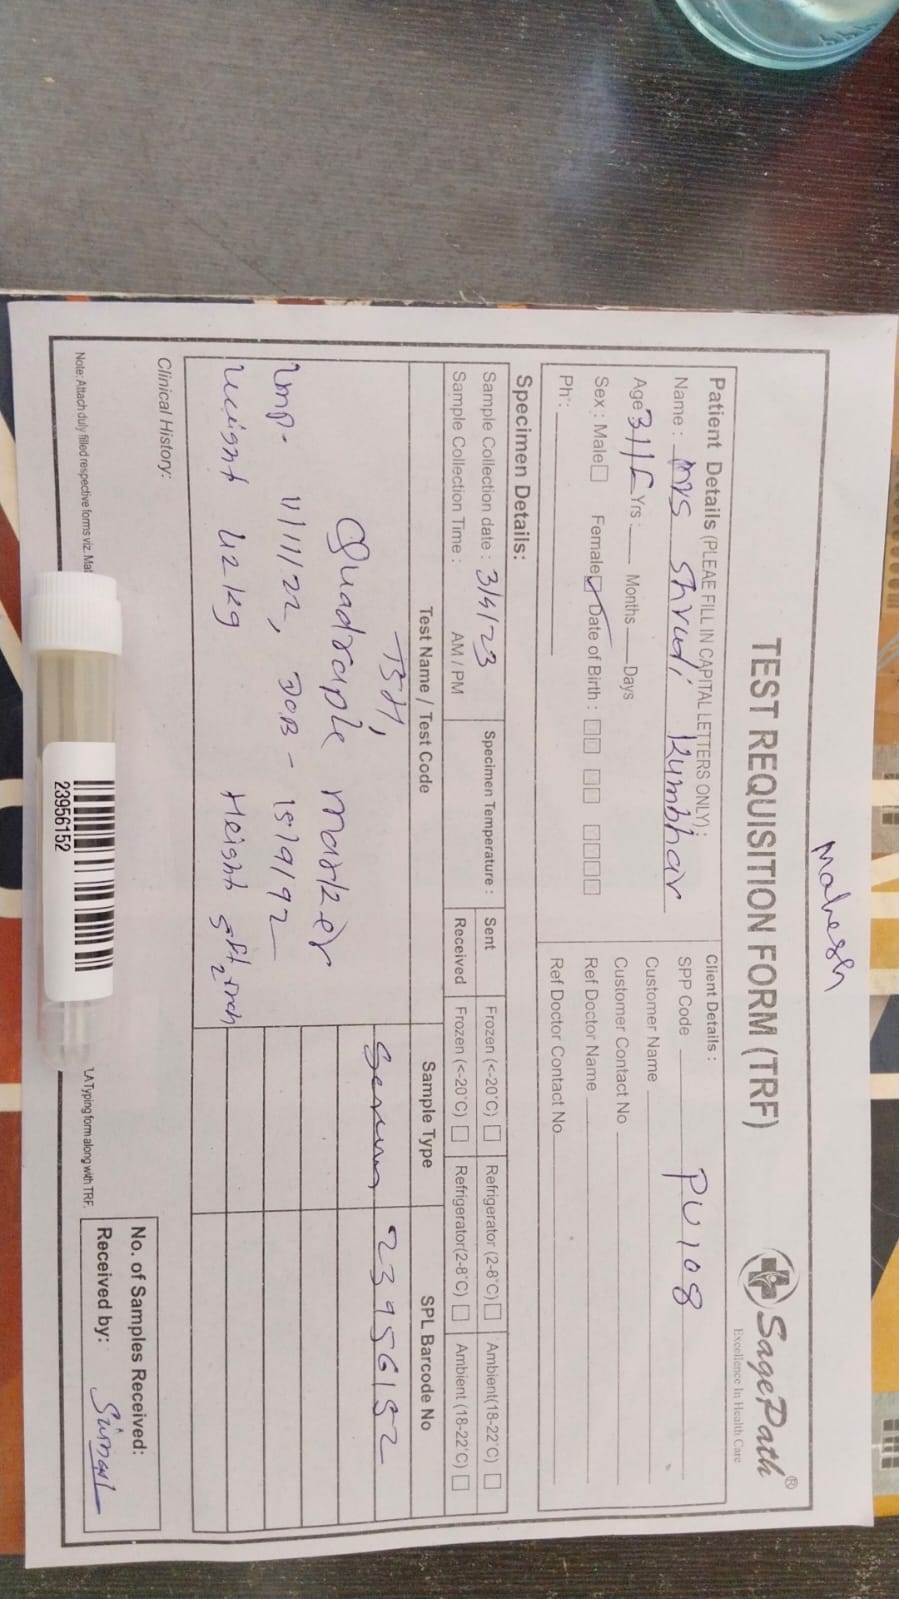 Mahesh
TEST REQUISITION FORM (TRF)
SagePath®
Excellence In Health Care
Patient Details (PLEAE FILL IN CAPITAL LETTERS ONLY) :
Name : Mrs Shruti Kumbhar
Age 31/F Yrs : Months Days
Sex : Male Female Date of Birth :
Ph :
Client Details :
SPP Code PU108
Customer Name
Customer Contact No
Ref Doctor Name
Ref Doctor Contact No
Specimen Details:
Sample Collection date : 3/4/23
Sample Collection Time : AM / PM
Specimen Temperature :
Sent Frozen (<-20°C) Refrigerator (2-8°C) Ambient(18-22°C)
Received Frozen (<-20°C) Refrigerator(2-8°C) Ambient (18-22°C)
Test Name / Test Code Sample Type SPL Barcode No
TSH, Serum 23956152
Quadraple marker
Lmp. 11/11/22, DOB - 15/9/92
Weight 42kg Height 5ft 2inch
Clinical History:
Note: Attach duly filled respective forms viz. Mat
LA Typing form along with TRF.
No. of Samples Received:
Received by:
23956152